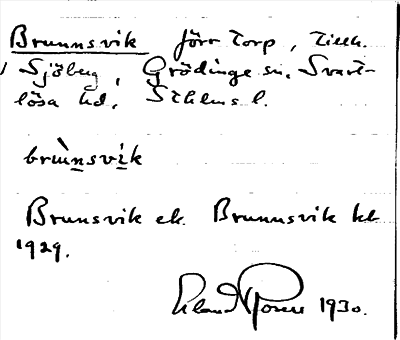 Brunnsvik förr torp, tillh.
Sjöberg, Grödinge sn. Svart-
lösa hd. Sthlms l.
brùnsvík
Brunsvik ek. Brunnsvik kb
1929.
1930.